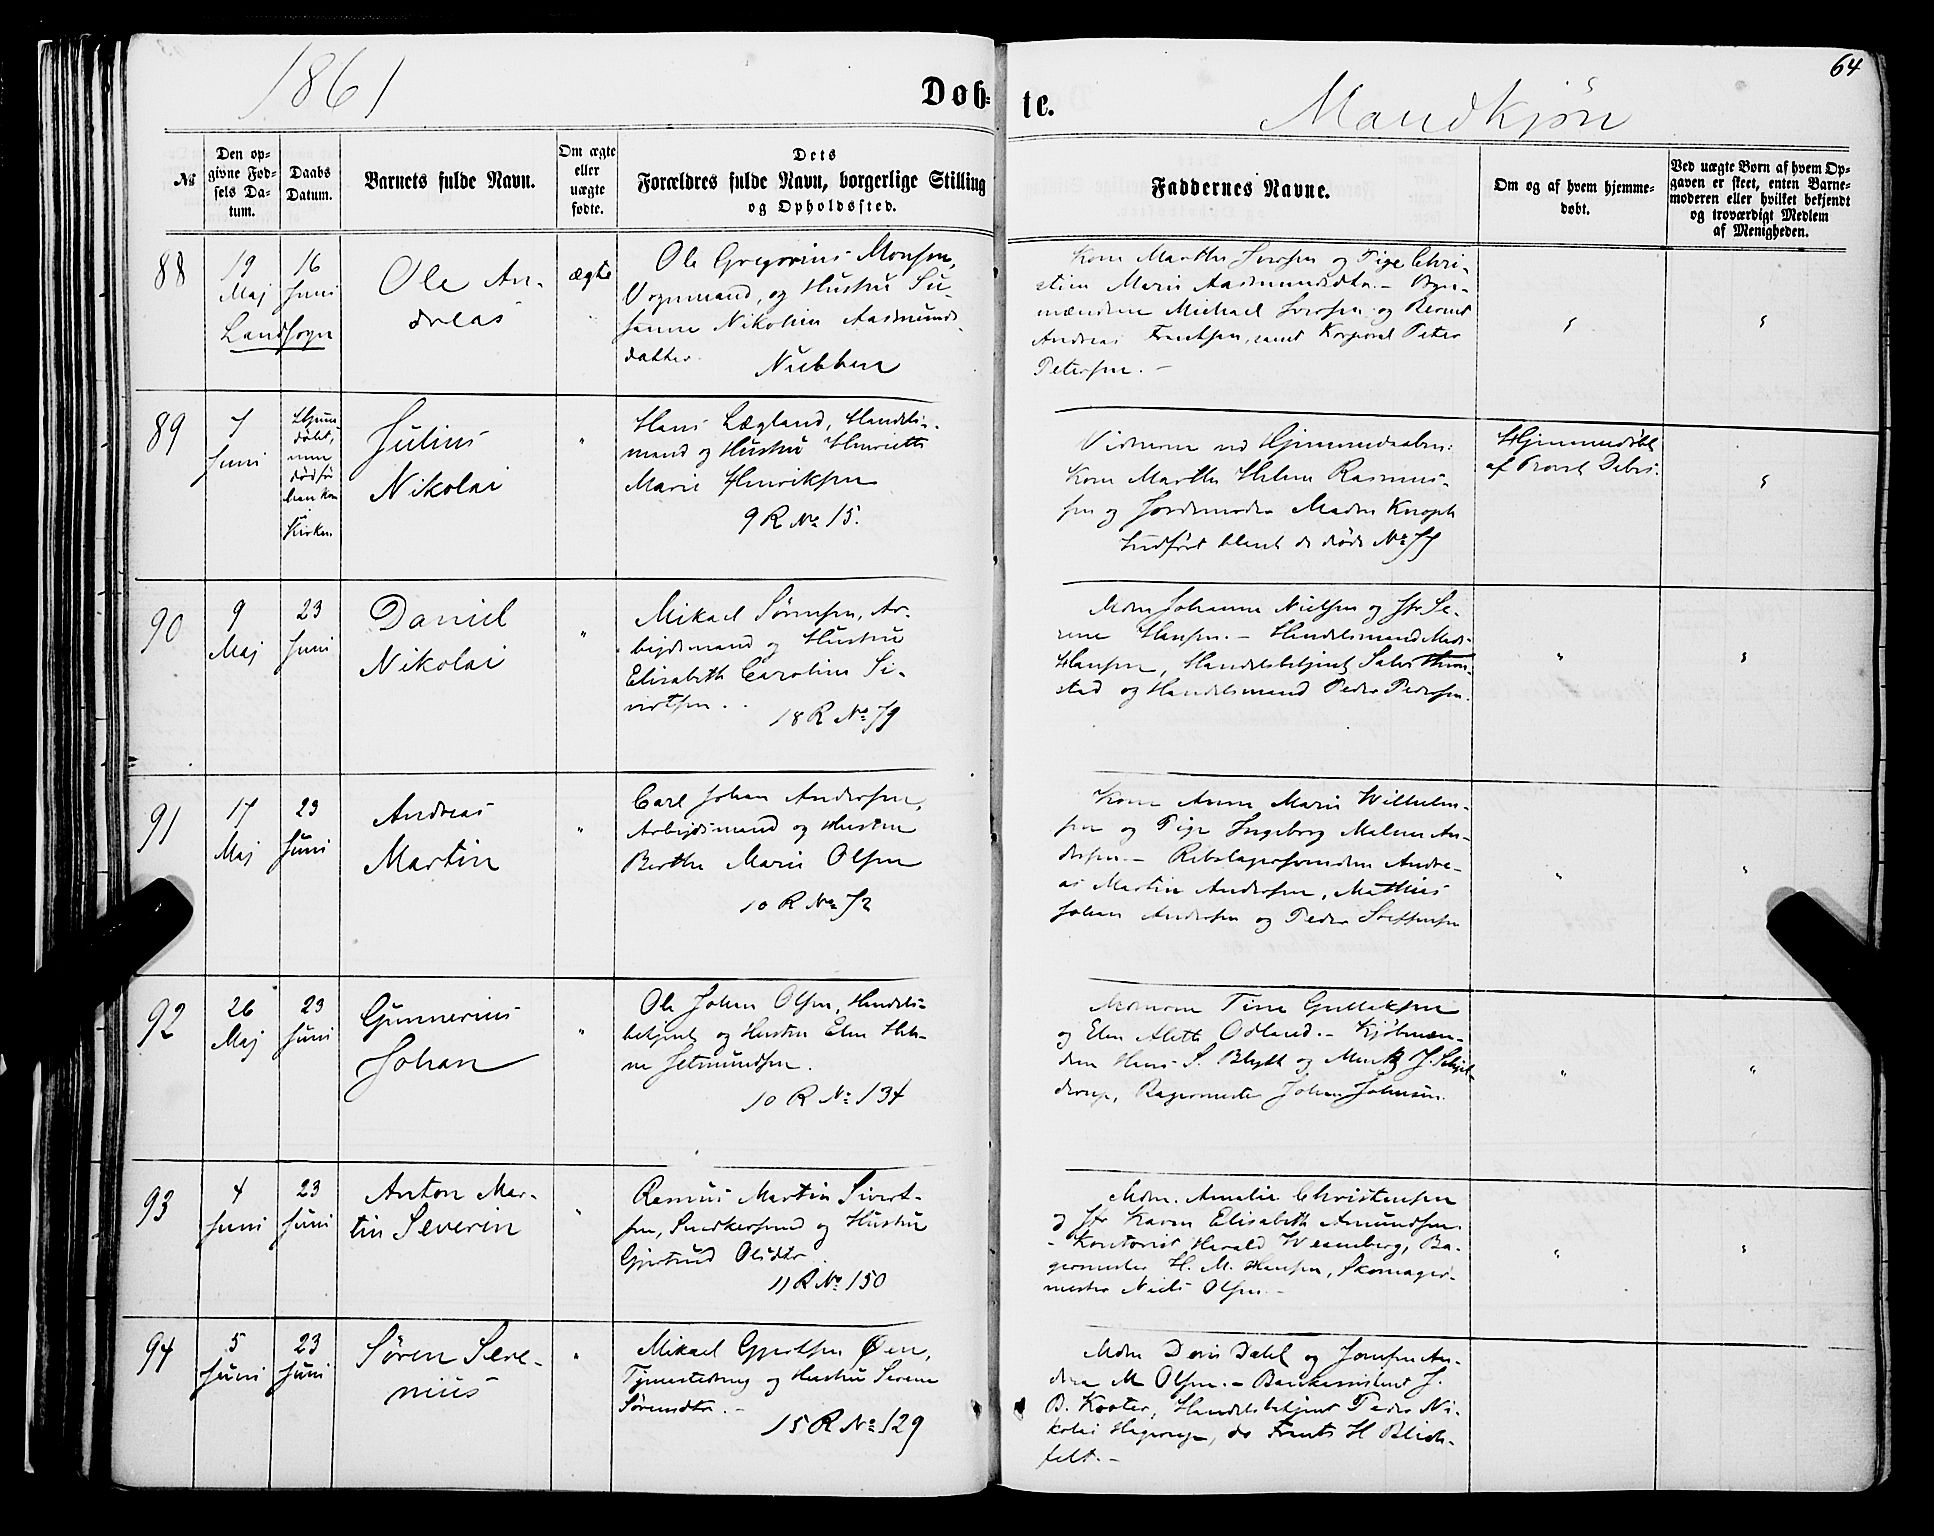 1861
Døb-
te.
Mandkjön
64
№
Den op-
givne Fød-
sels Da-
tum.
Daabs
Datum.
Barnets fulde Navn.
Om ægte
eller
uægte
fødte.
Dets
Forældres fulde Navn, borgerlige Stilling
og Opholdssted.
Faddernes Navne.
Om og af hvem hjemme-
døbt.
Ved uægte Børn af hvem Op-
gaven er skeet, enten Barne-
moderen eller hvilket bekjendt
og troværdigt Medlem
af Menigheden.
88
19
Maj
Landsogn
16
Juni
Ole An-
dreas
ægte
Ole Gregorius Monsen,
Vognmand, og Hustru Su-
sanne Nikoline Aasmunds-
datter.
Nubben
Kone Marthe Iversen og Pige Chri-
stine Marie Aasmundsdtr. –
mændene Michael Iversen og Bernt
Andreas Frantsen, samt Korporal Peter
Petersen. –
89
7
Juni
Hjemme
døbt,
men
død før
han kom
i
Kirken
Julius
Nikolai
"
Hans Lægland, Handels-
mand og Hustru Henriette
Marie Henriksen
9 R № 15.
Vidnerne ved Hjemmedaaben:
Kone Marthe Helene Rasmus-
sen og Jordemoder Madm Knoph
Indført blant de døde № 77
Hjemmedøbt
af Provst Debes.
90
9
Maj
23
Juni
Daniel
Nikolai
"
Mikael Sörensen, Ar-
bejdsmand og Hustru
Elisabeth Caroline Si-
vertsen. .
18 R № 79
Mdm Johanne Nielsen og Jfr Se-
rine Hansen. – Handelsmand Mads
Hansen, Handelsbetjent Salve
stad og Handelsmand Peder Pedersen.
"
91
17
Maj
23
Juni
Andreas
Martin
"
Carl Johan Andersen,
Arbejdsmand og Hustru
Berthe Marie Olsen
10 R № 72
Kone Anne Marie Wilhelm-
sen og Pige Ingeborg Malene An-
dersen. – Rebslagersvendene Andre-
as Martin Andersen, Mathias
Johan Andersen og Peder Steffensen
"
92
26
Maj
23
Juni
Gunnerius
Johan
"
Ole Johan Olsen, Handels-
betjent og Hustru Elen Hele-
ne Jetmundsen.
10 R № 134
Mdmerne Tine Gullaksen
og Elen Alette Odland. – Kjöbmæn-
dene Hans S. Blytt og Mentz J. Schjel-
derup, Bagermester Johan Johnsen.
"
"
93
4
Juni
23
Juni
Anton Mar-
tin Severin
"
Rasmus Martin Sivert-
sen, Snedkersvend og Hustru
Gjertrud Olsdtr
11 R № 150
Mdm. Amalie Christensen
og Jfr Karen Elisabeth Amundsen.
– Kontorist Herald Wesenberg, Ba-
germester H. M. Hansen, Skomager-
mester Niels Olsen. –
"
94
5
Juni
23
Juni
Sören Seve-
rius
"
Mikael Gjertsen Øen,
og Hustru Serene
Sörensdtr. –
15 R № 129
Mdm Doris Dahl og Jomfru An-
drea M Olsen. – Bankassistent J.
B. Koster, Handelsbetjent Peder Ni-
kolai Hagerup, do Frants H Blich-
felt. –